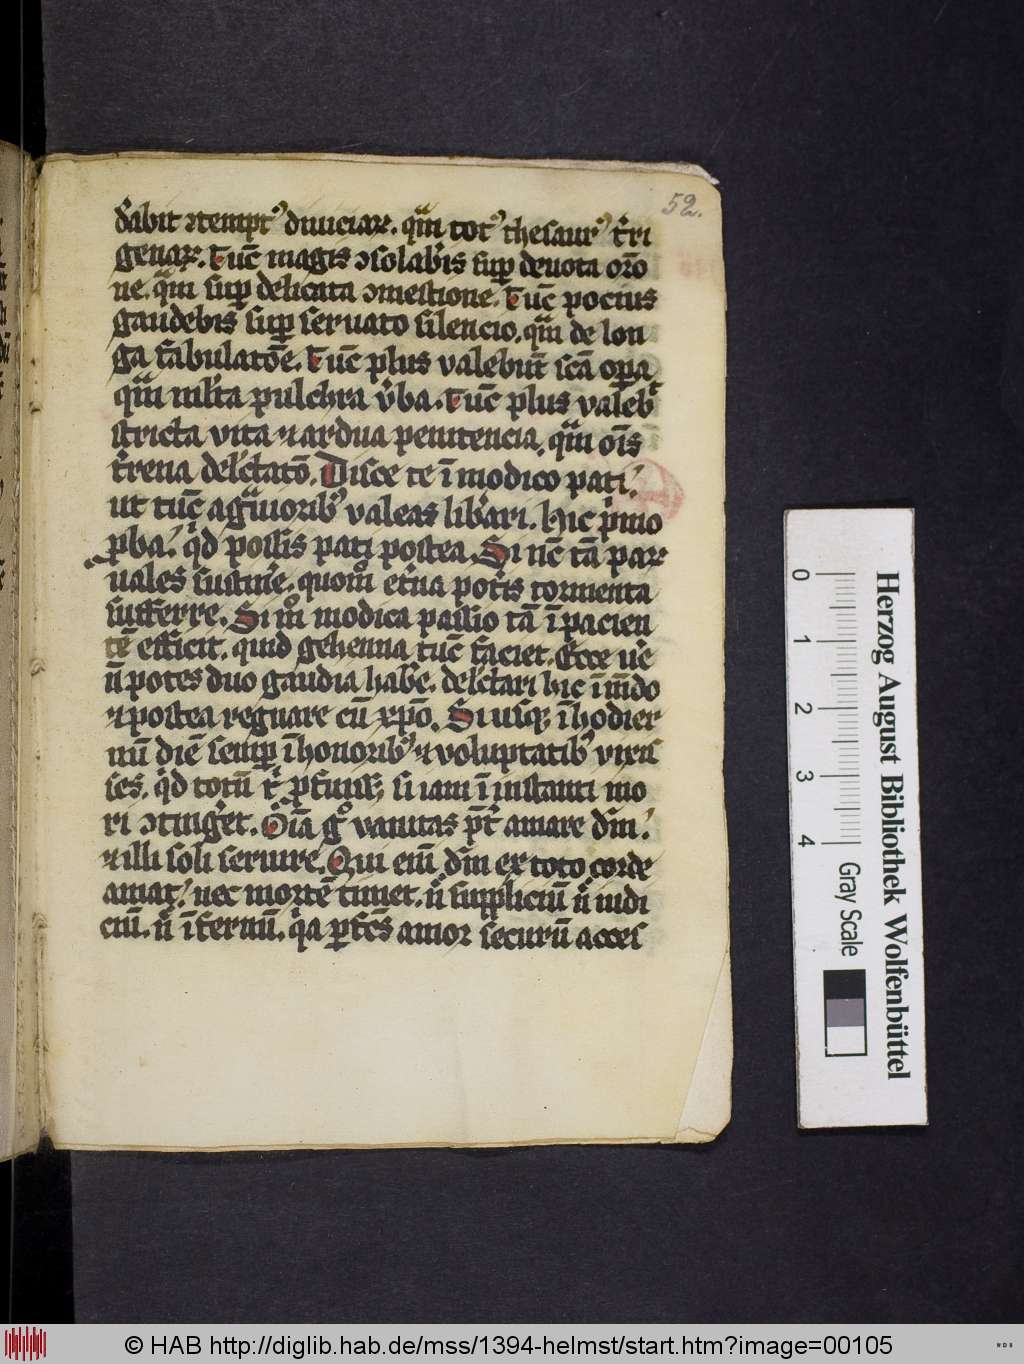 52.
d̄abit ꝯtempt⁹ diuiciaꝝ. qm̄ tot⁹ thesaur⁹ t̄ri
genaꝝ. Tūc magis ꝯsolab̄is sup̱ deuota or̄o
ne. qm̄ sup̱ delicata ꝯmestione. Tūc pocius
gaudebis sup̱ seruato silencio. qm̄ de lon
ga fabulatōe. Tūc plus valebūt sc̄a oꝑa
qm̄ ml̄ta pulchra v̄ba. Tūc plus valeb̄
stricta vita ⁊ ardua penitencia. qm̄ oīs
t̄rena delc̄tatō. Disce te ī modico pati
ut tūc agͣuiorib⁹ valeas lib̄ari. Hic pͥmo
ꝓba. qͥd possis pati postea. Si nc̄ tā par
ua les sustin̄e. quom̊ et̄na pot̄is tormenta
sufferre. Si m̊ modica passio tā īpacien
tē efficit. quid gehenna tūc faciet. Ecce ve
n̄ potes duo gaudia hab̄e. delc̄tari hic ī mūdo
⁊ postea regnare cū xp̄o. Si usqꝫ ī hodier
nū diē semꝑ ī honorib⁹ ⁊ voluptatib⁹ vixis
ses. qͥd totū tͥ ꝓfuisꝫ si iam ī instanti mo
ri ꝯting̅et. Oīa gͦ vanitas p̄t̄ amare dm̄
⁊ illi soli seruire. Qui eni dm̄ ex toto corde
amat. nec mortē timet. n̄ suppliciū n̄ iudi
ciū. n̄ īfernū. qͥa ꝑfc̄s amor securū acces
Herzog August Bibliothek Wolfenbüttel
0 1 2 3 4 Gray Scale
© HAB http://diglib.hab.de/mss/1394-helmst/start.htm?image=00105